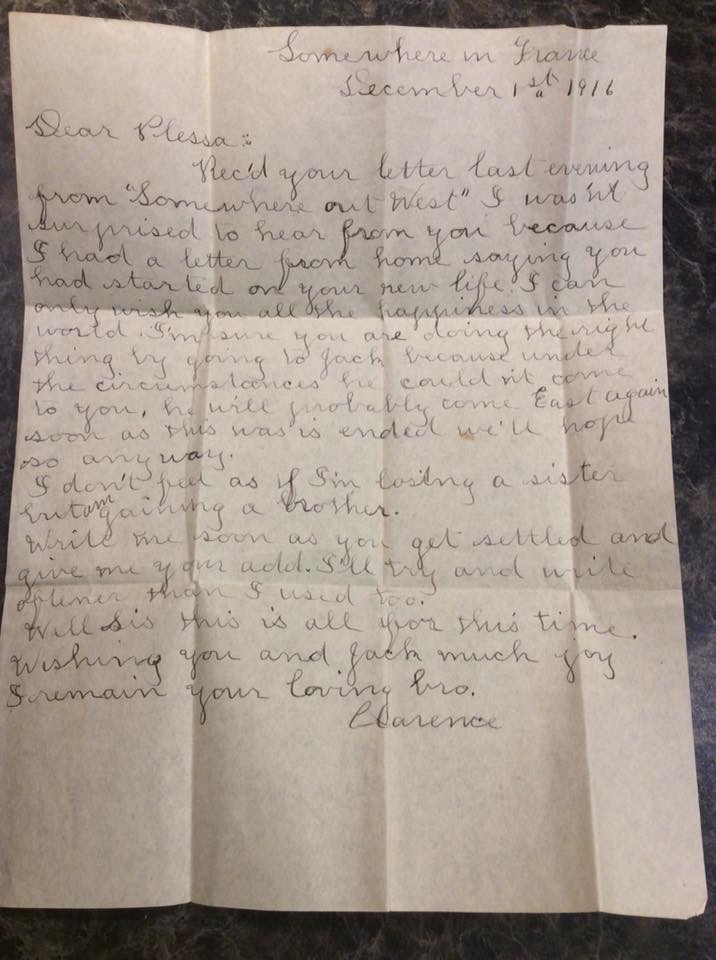 Somewhere in France
December 1st 1916
Dear Plessa:
Rec'd your letter last evening
from "Somewhere out West" I was'nt
surprised to hear from you because
I had a letter from home saying you
had started on your new life. I can
only wish you all the happiness in the
world. I'm sure you are doing the right
thing by going to Jack because under
the circumstances he could n't come
to you, he will probably come East again
soon as this was is ended we'll hope
so anyway.
I don't feel as if I'm losing a sister
but am gaining a brother.
Write me soon as you get settled and
give me your add. I'll try and write
oftener than I used too.
Well Sis this is all for this time.
Wishing you and Jack much joy
I remain your loving bro.
Clarence